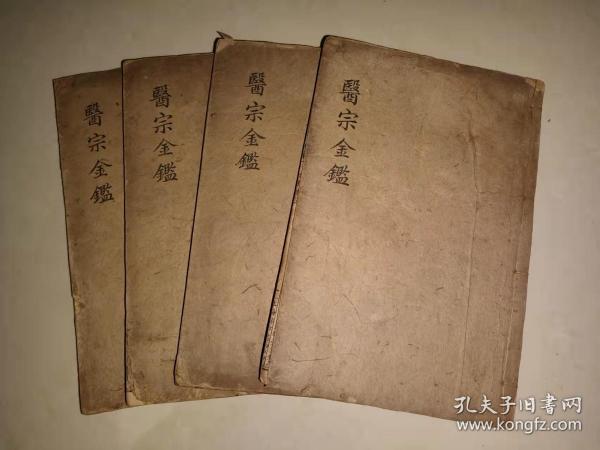 醫宗金鑑
醫宗金鑑
醫宗金鑑
醫宗金鑑
孔夫子旧书网
www.kongfz.com